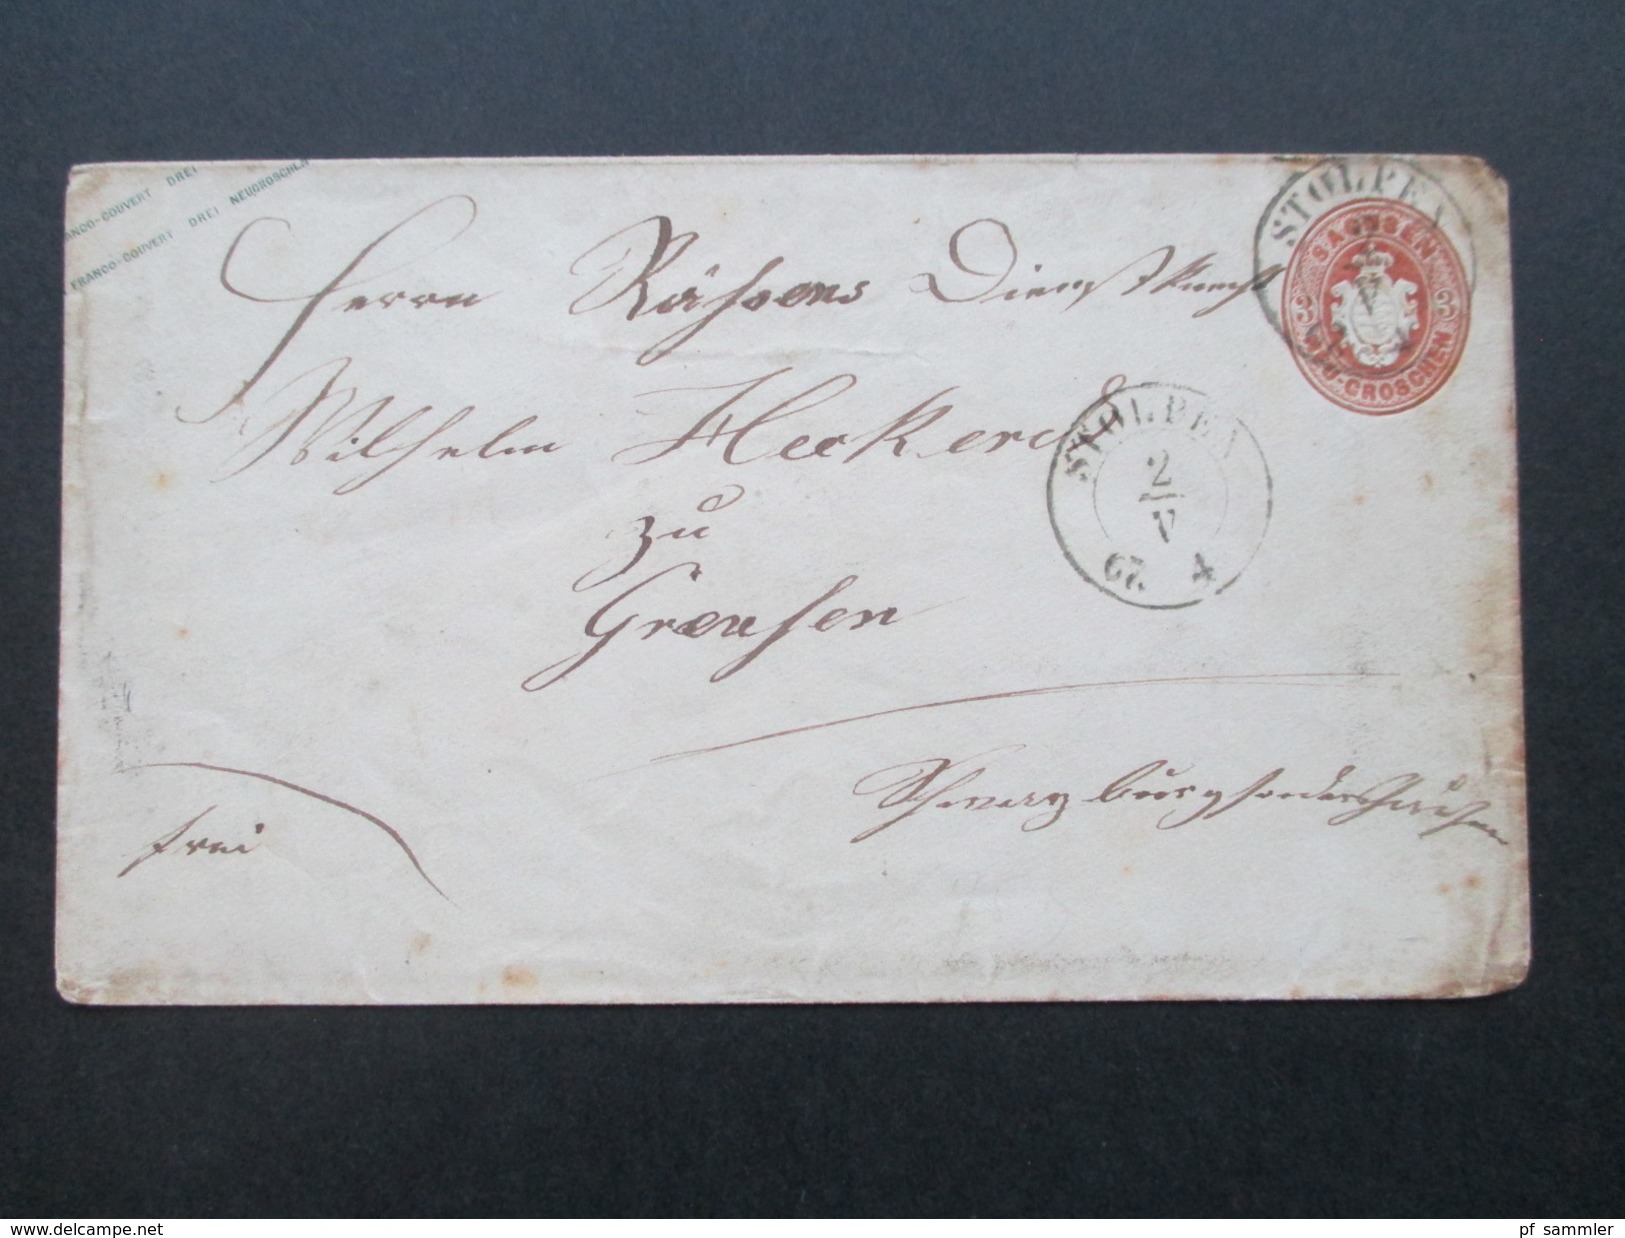 FRANCO-COUVERT DREI
FRANCO-COUVERT DREI NEUGROSCHEN
STOLPEN
SACHSEN
3 3
NEU-GROSCHEN
Herrn Dienstknecht
Wilhelm Heckerd
STOLPEN
2
V
67. 4
zu
Greusen
Schwarzburgsondershausen
frei
delcampe.net
pf_sammler